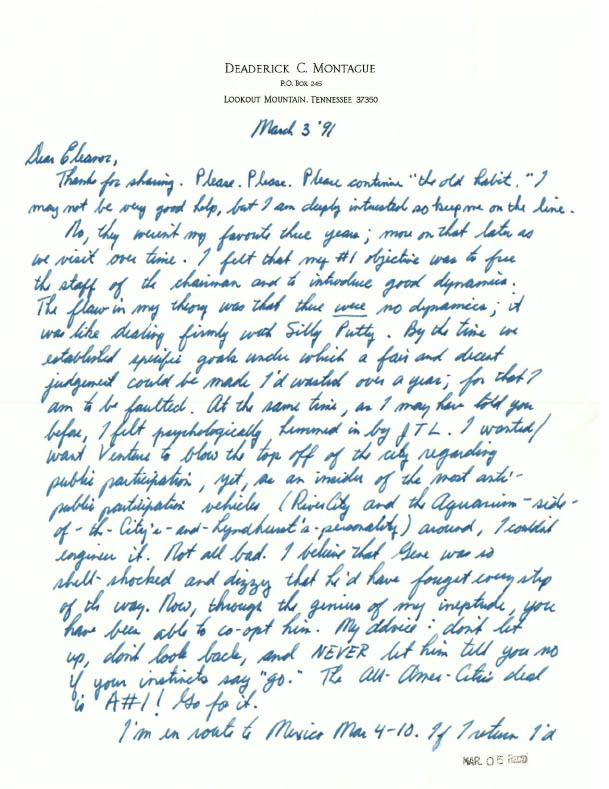 DEADERICK C. MONTAGUE
P.O. BOX 245
LOOKOUT MOUNTAIN, TENNESSEE 37350
March 3 '91
Dear Eleanor,
Thanks for sharing. Please. Please. Please continue "the old habit." I
may not be very good help, but I am deeply interested so keep me on the line.
No, they weren't my favorite three years; more on that later as
we visit over time. I felt that my #1 objective was to free
the staff of the chairman and to introduce good dynamics.
The flaw in my theory was that there were no dynamics; it
was like dealing firmly with Silly Putty. By the time we
established specific goals under which a fair and decent
judgement could be made I'd wasted over a year; for that I
am to be faulted. At the same time, as I may have told you
before, I felt psychologically hemmed in by JTL. I wanted/
want Venture to blow the top off of the city regarding
public participation, yet, as an insider of the most anti-
public participation vehicles (RiverCity and the Aquarium-side-
of-the-City's-and-Lyndhurst's-personality) around, I couldn't
engineer it. Not all bad. I believe that Gene was so
shell-shocked and dizzy that he'd have fought every step
of the way. Now, through the genius of my ineptitude, you
have been able to co-opt him. My advice: don't let
up, don't look back, and NEVER let him tell you no
if your instincts say "go." The All-Amer-Cities deal
is A#1! Go for it.
I'm en route to Mexico Mar 4-10. If I return I'd
MAR. 05 REC'D